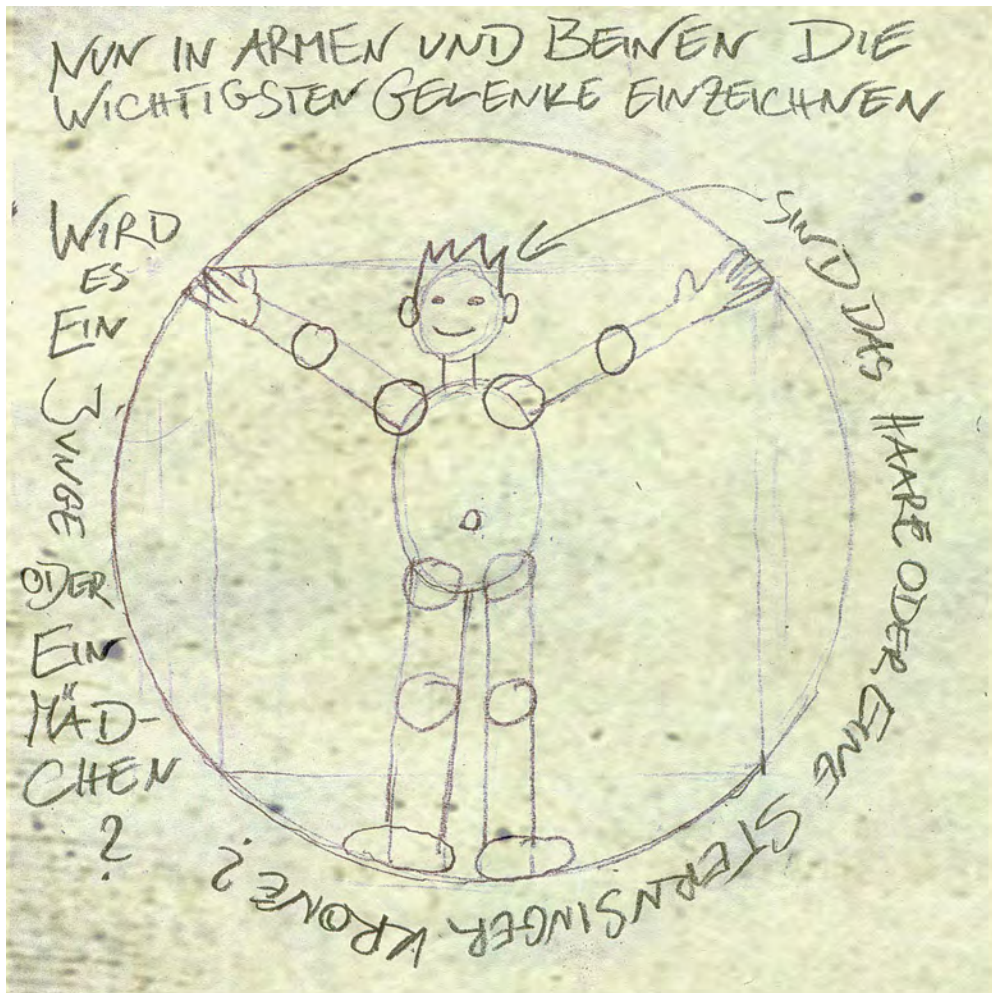 NUN IN ARMEN UND BEINEN DIE
WICHTIGSTEN GELENKE EINZEICHNEN
WIRD
ES
EIN
JUNGE
ODER
EIN
MÄD-
CHEN
?
SIND DAS HAARE ODER EINE STERNSINGER KRONE?